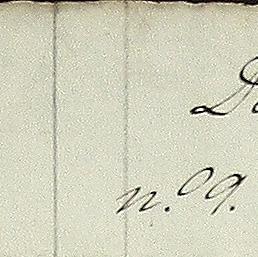 n.º 9.